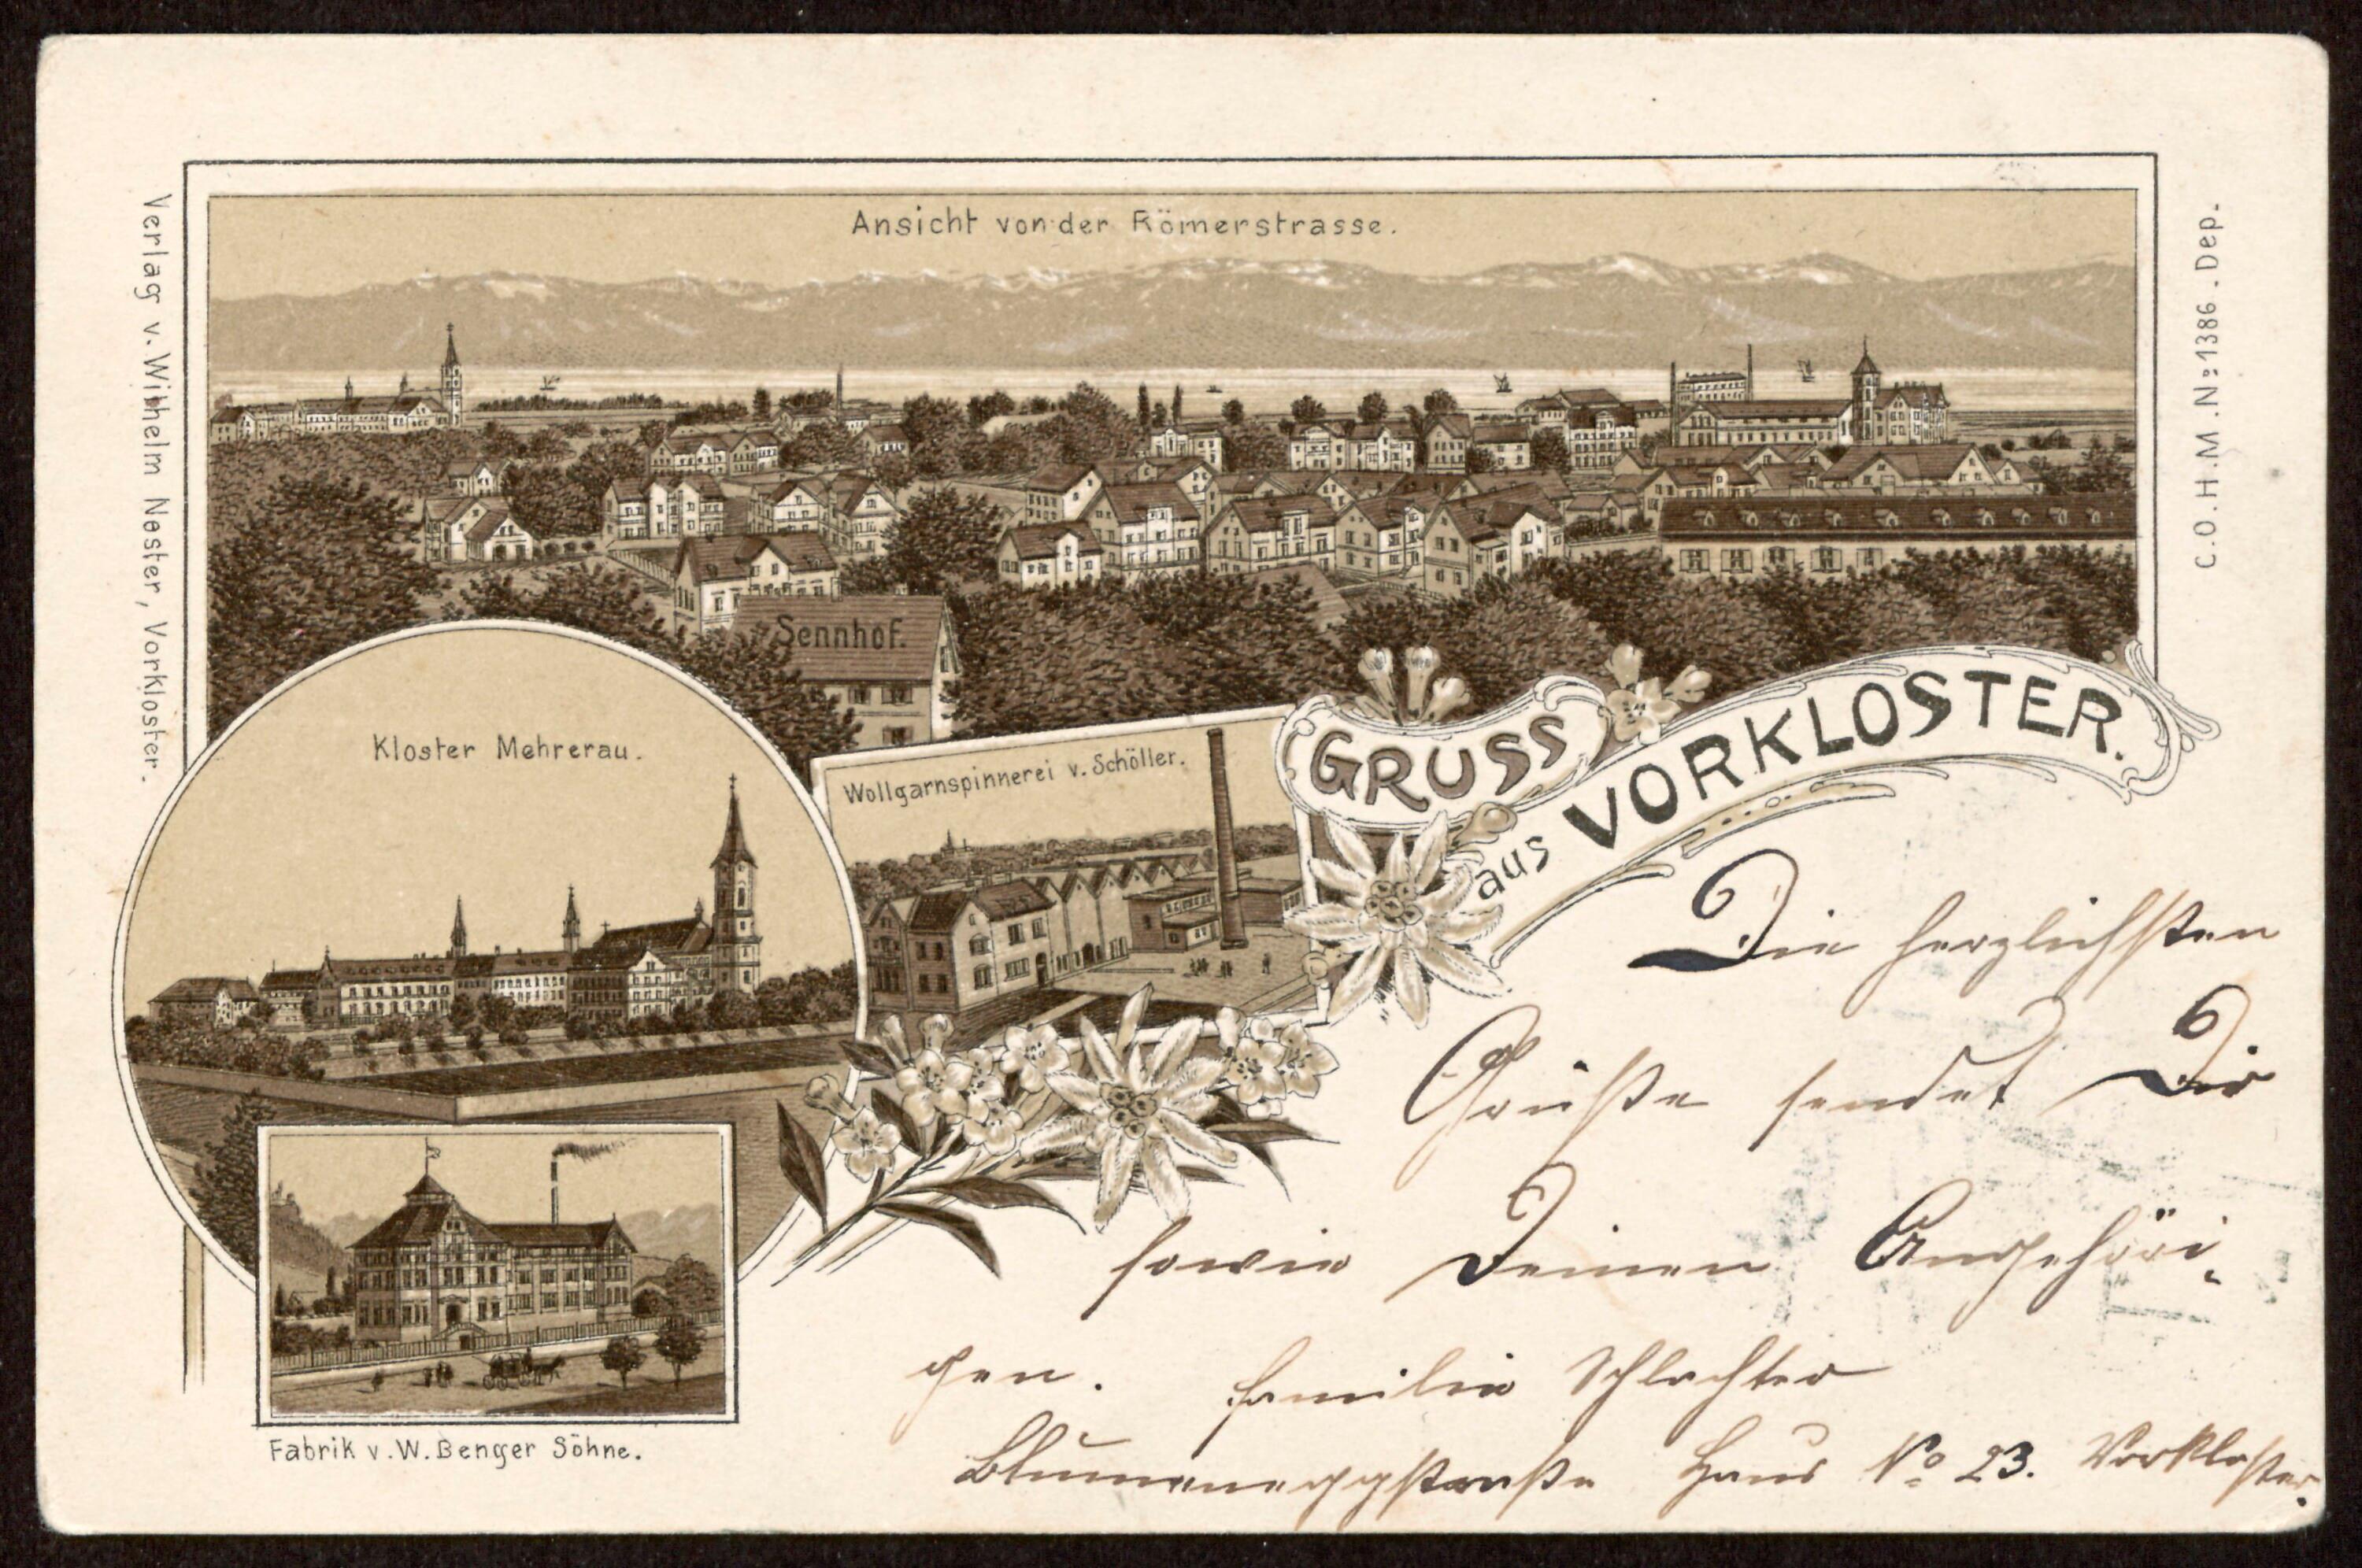 Ansicht von der Römerstrasse.
Verlag v. Wilhelm Nester, Vorkloster.
C.O.H.M.Nº1386.Dep.
Sennhof.
Kloster Mehrerau.
Wollgarnspinnerei v. Schöller.
GRUSS
aus VORKLOSTER.
Fabrik v. W. Benger Söhne.
Die herzlichsten
Grüße sendet Dir
sowie Deinen Angehöri-
gen. Familie Schlachter
Blumeneggstraße Haus Nº 23. Vorkloster.